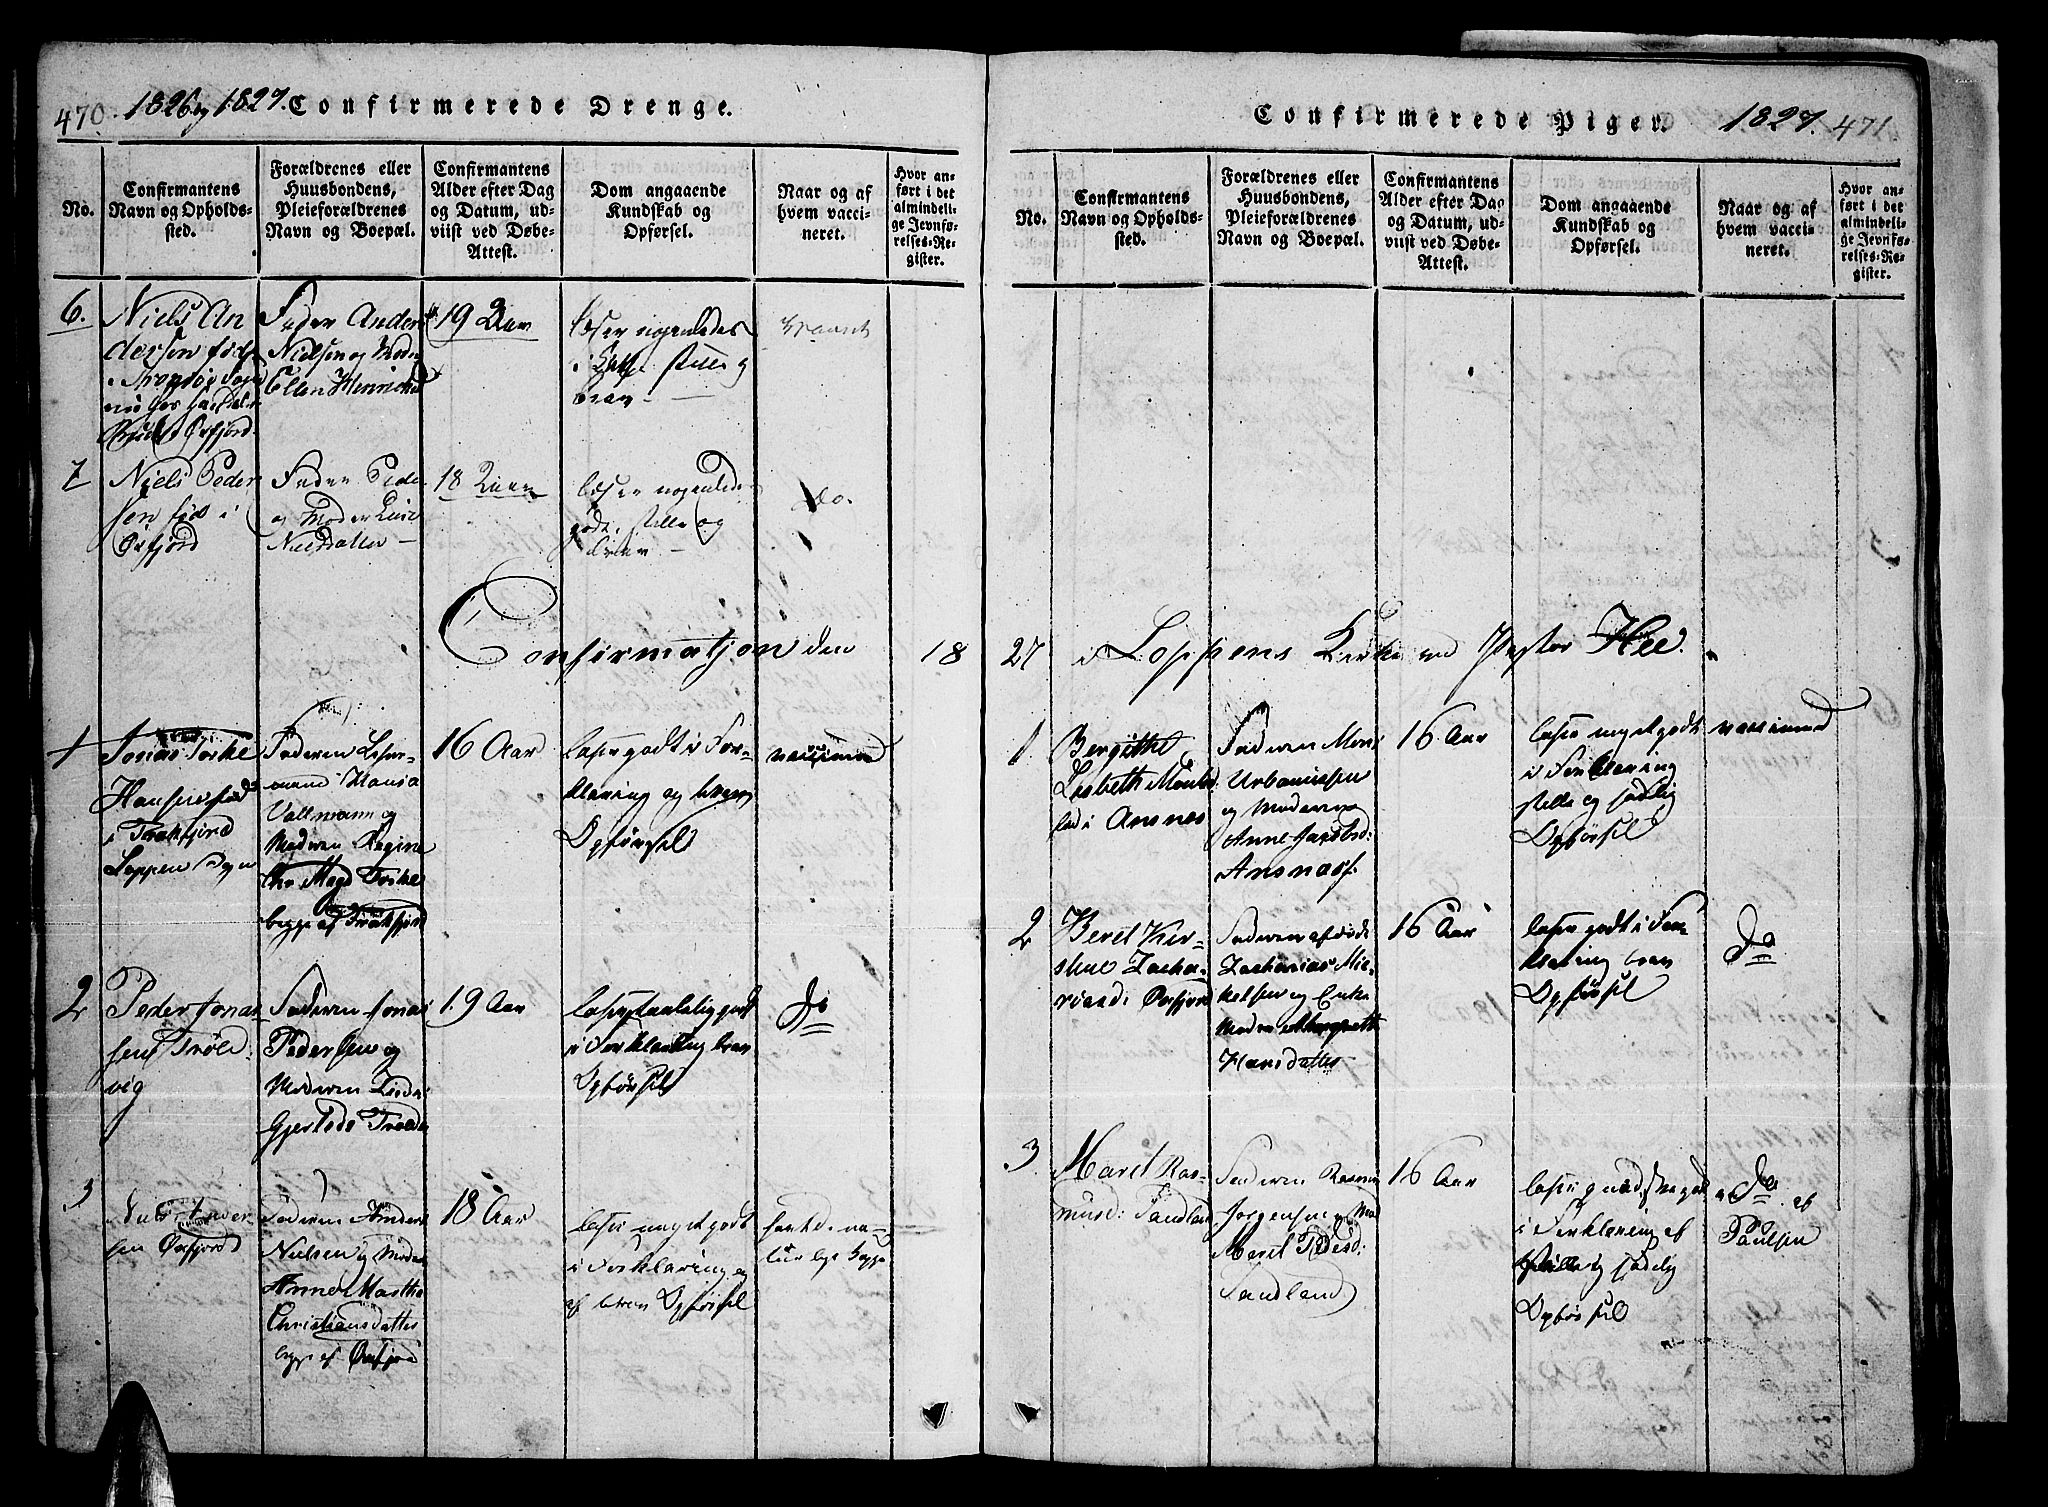 470. 1826 og 1827. Confirmerede Drenge.
No.
Confirmantens
Navn og Opholds-
sted.
Forældrenes eller
Huusbondens,
Pleieforældrenes
Navn og Boepæl.
Confirmantens
Alder efter Dag
og Datum, ud-
viist ved Døbe-
Attest.
Dom angaaende
Kundskab og
Opførsel.
Naar og af
hvem vacci-
neret.
Hvor an-
ført i det
almindeli-
ge Jevnfø-
relses-Re-
gister.
6.
Niels An
dersen
Fader Anders
Nielsen og Moder
Elen Henrichsd
19 Aar
læser nogenledes
i stille og
brav
7
Niels Peder
sen født i
Øxfjord
Fader Peder
og Moder Line
Nielsdatter
18 Aar
læser nogenledes
godt, stille og
brav
do.
Confirmatjon den 18
1
Jonas Torke
Hansen født
i Frakfjord
Loppen Sogn
Faderen
Hans
Vallmann og
Moderen Regine
Chr Magd Torke
begge af Frakfjord
16 Aar
læser godt i For-
klaring og brav
Opførsel
vaccinered
2
Peder Jonas-
sen Trold
vig
Faderen Jonas
Pedersen og
Moderen
Gjertsd: Trold
19 Aar
læser taalelig godt
i Forklaring brav
Opførsel
do
3
Niels Ander
sen Øxfjord
Faderen Anders
Nielsen og Moder
Anne Marthe
Christiansdatter
begge af Øxfjord
18 Aar
læser meget godt
i Forklaring og
af brav Opførsel
havt de na-
turlige Kopper
Confirmerede Piger. 1827. 471.
No.
Confirmantens
Navn og Opholds-
sted.
Forældrenes eller
Huusbondens,
Pleieforældrenes
Navn og Boepæl.
Confirmantens
Alder efter Dag
og Datum, ud-
viist ved Døbe-
Attest.
Dom angaaende
Kundskab og
Opførsel.
Naar og af
hvem vacci-
neret.
Hvor an-
ført i det
almindeli-
ge Jevnfø-
relses-Re-
gister.
27 i Loppens Kirke ved Pastor Hee.
1
Bergithe
Lisbeth Monsd
født i Ansnes
Faderen Mons
Urbanussen
og Moderen
Anne Jacobsd:
Ansnæs
16 Aar
læser meget godt
i Forklaring
stille og sædelig
Opførsel
vaccinered
2
Beret Kir-
stine Zacha-
riasd: Øxfjord
Faderen afdøde
Zacharias Mic-
kelsen og Enke
Moder Margreth
Hansdatter
16 Aar
læser godt i For-
klaring brav
Opførsel
do
3
Maret Ras-
musd: Sandland
Faderen Rasmus
Jørgensen og Mo
Meret Pedersd:
Sandland
16 Aar
læser maadelig godt
i Forklaring af
stille og sædelig
Opførsel
do af
Paulsen